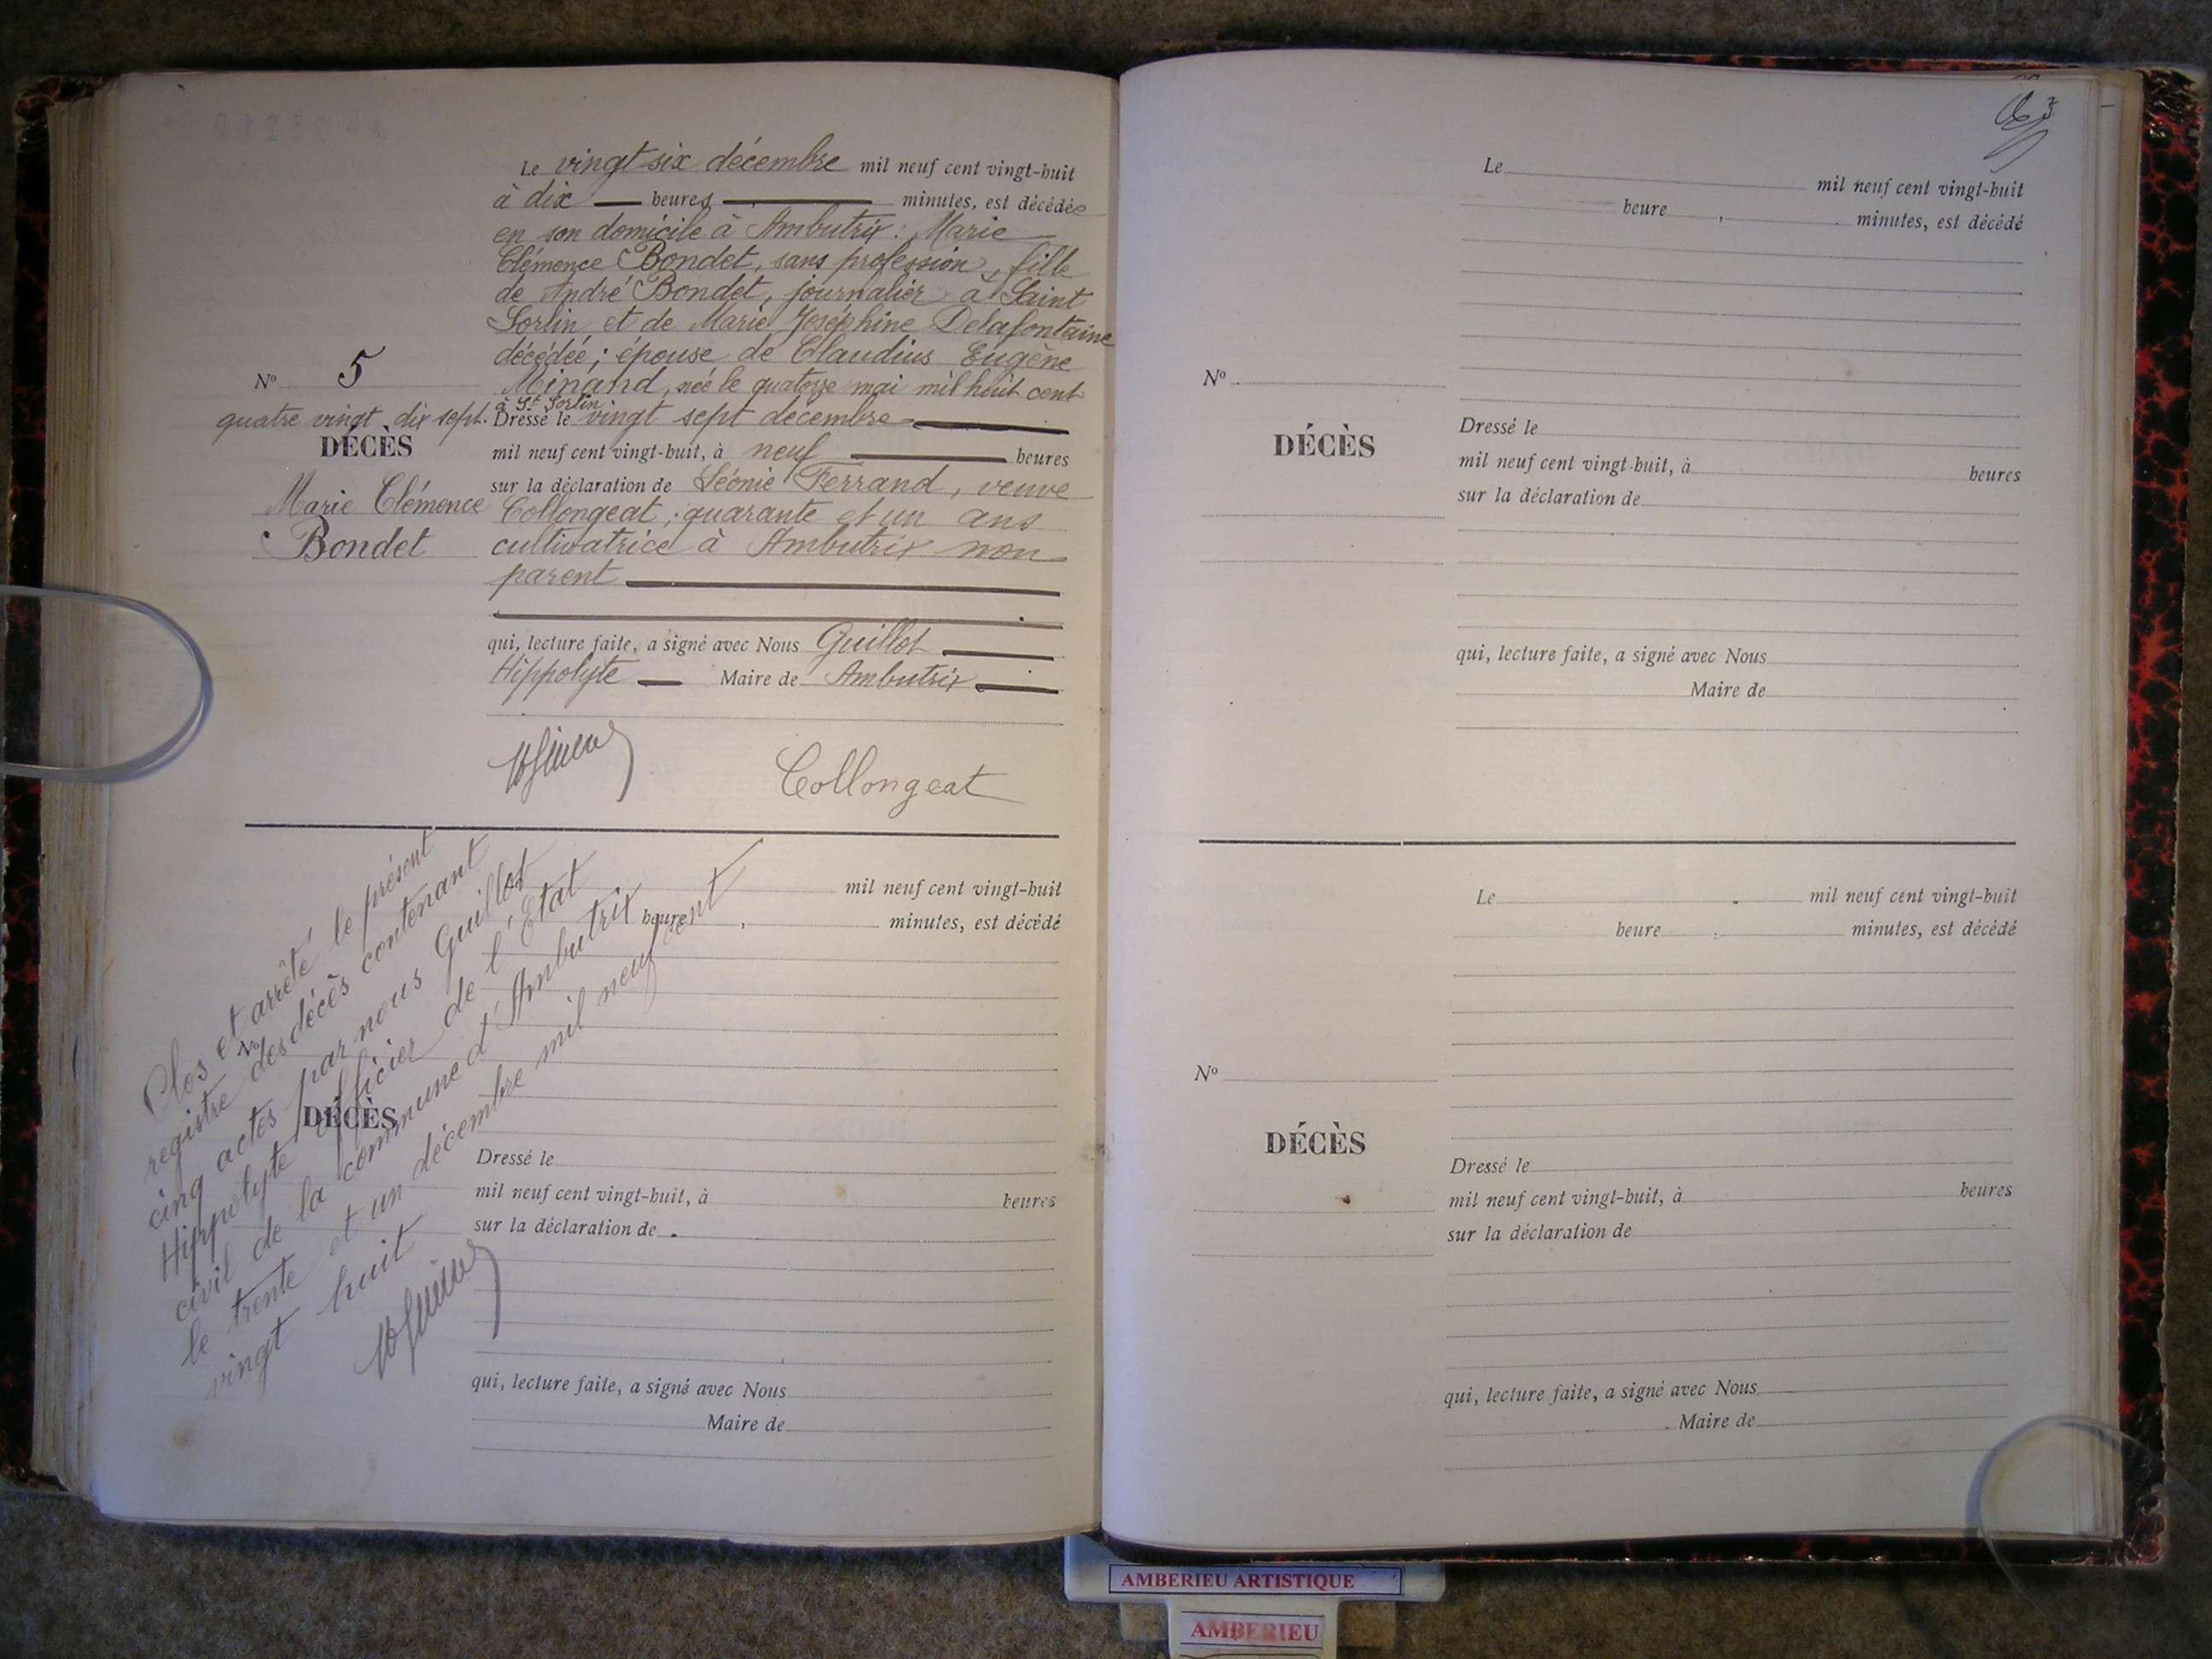 Le vingt six décembre mil neuf cent vingt-huit
à dix heures minutes, est décédée
en son domicile à Ambutrix : Marie
Clémence Bondet, sans profession, fille
de André Bondet, journalier à Saint
Sorlin et de Marie Joséphine Delafontaine
décédée ; épouse de Claudius Eugène
Minand, née le quatorze mai mil huit cent
quatre vingt dix sept. à St Sorlin
Nº 5
DÉCÈS
Marie Clémence
Bondet
Dressé le vingt sept décembre
mil neuf cent vingt-huit, à neuf heures
sur la déclaration de Léonie Ferrand, veuve
Collongeat, quarante et un ans
cultivatrice à Ambutrix non
parent
qui, lecture faite, a signé avec Nous Guillot
Hippolyte Maire de Ambutrix
Collongeat
Clos et arrêté le présent
registre des décès contenant
cinq actes par nous Guillot
Hippolyte officier de l'Etat
civil de la commune d'Ambutrix
le trente et un décembre mil neuf cent
vingt huit
mil neuf cent vingt-huit
heure minutes, est décédé
Nº
DÉCÈS
Dressé le
mil neuf cent vingt-huit, à heures
sur la déclaration de
qui, lecture faite, a signé avec Nous
Maire de
Le mil neuf cent vingt-huit
heure minutes, est décédé
Nº
DÉCÈS
Dressé le
mil neuf cent vingt-huit, à heures
sur la déclaration de
qui, lecture faite, a signé avec Nous
Maire de
Le mil neuf cent vingt-huit
heure minutes, est décédé
Nº
DÉCÈS
Dressé le
mil neuf cent vingt-huit, à heures
sur la déclaration de
qui, lecture faite, a signé avec Nous
Maire de
AMBERIEU ARTISTIQUE
AMBERIEU